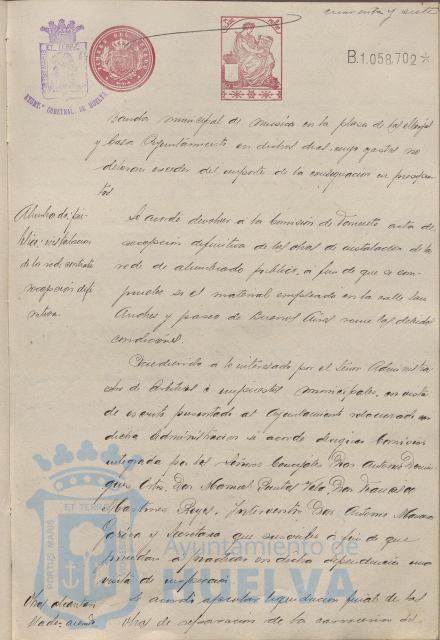 cuarenta y siete
B.1.058.702*
AYUNTº CONSTNAL. DE HUELVA
banda municipal de musica en la plaza de las Monjas
y Casa Ayuntamiento en dichos dias cuyos gastos no
deberan exceder del importe de la consignacion en presupues-
tos
Alumbrado pú-
blico: instalacion
de la red, contrato
recepcion defi-
nitiva.
Se acordo devolver a la Comision de Fomento acta de
recepcion definitiva de las obras de instalacion de la
red de alumbrado publico, a fin de que se com-
pruebe si el material empleado en la calle San
Andres y paseo de Buenos Aires reune las debidas
condiciones.
Accediendo a lo interesado por el Señor Administra-
dor de Arbitrios é impuestos municipales, en vista
de escrito presentado al Ayuntamiento relacionado con
dicha Administracion se acordo designar Comision
integrada por los Señores Concejales Don Antonio Domin-
guez Ortiz, Don Manuel PVela, Don Francisco
Martinez Reyes, Interventor Don Antonio
y Secretario que suscribe a fin de que
procedan a practicar en dicha dependencia una
visita de inspeccion.
Obras alcantari-
llado,
Se acordo aprobar liquidacion parcial de las
obras de reparacion de la carretera del
Ayuntamiento de
HUELVA
PORTUS MARIS
ET TERRE